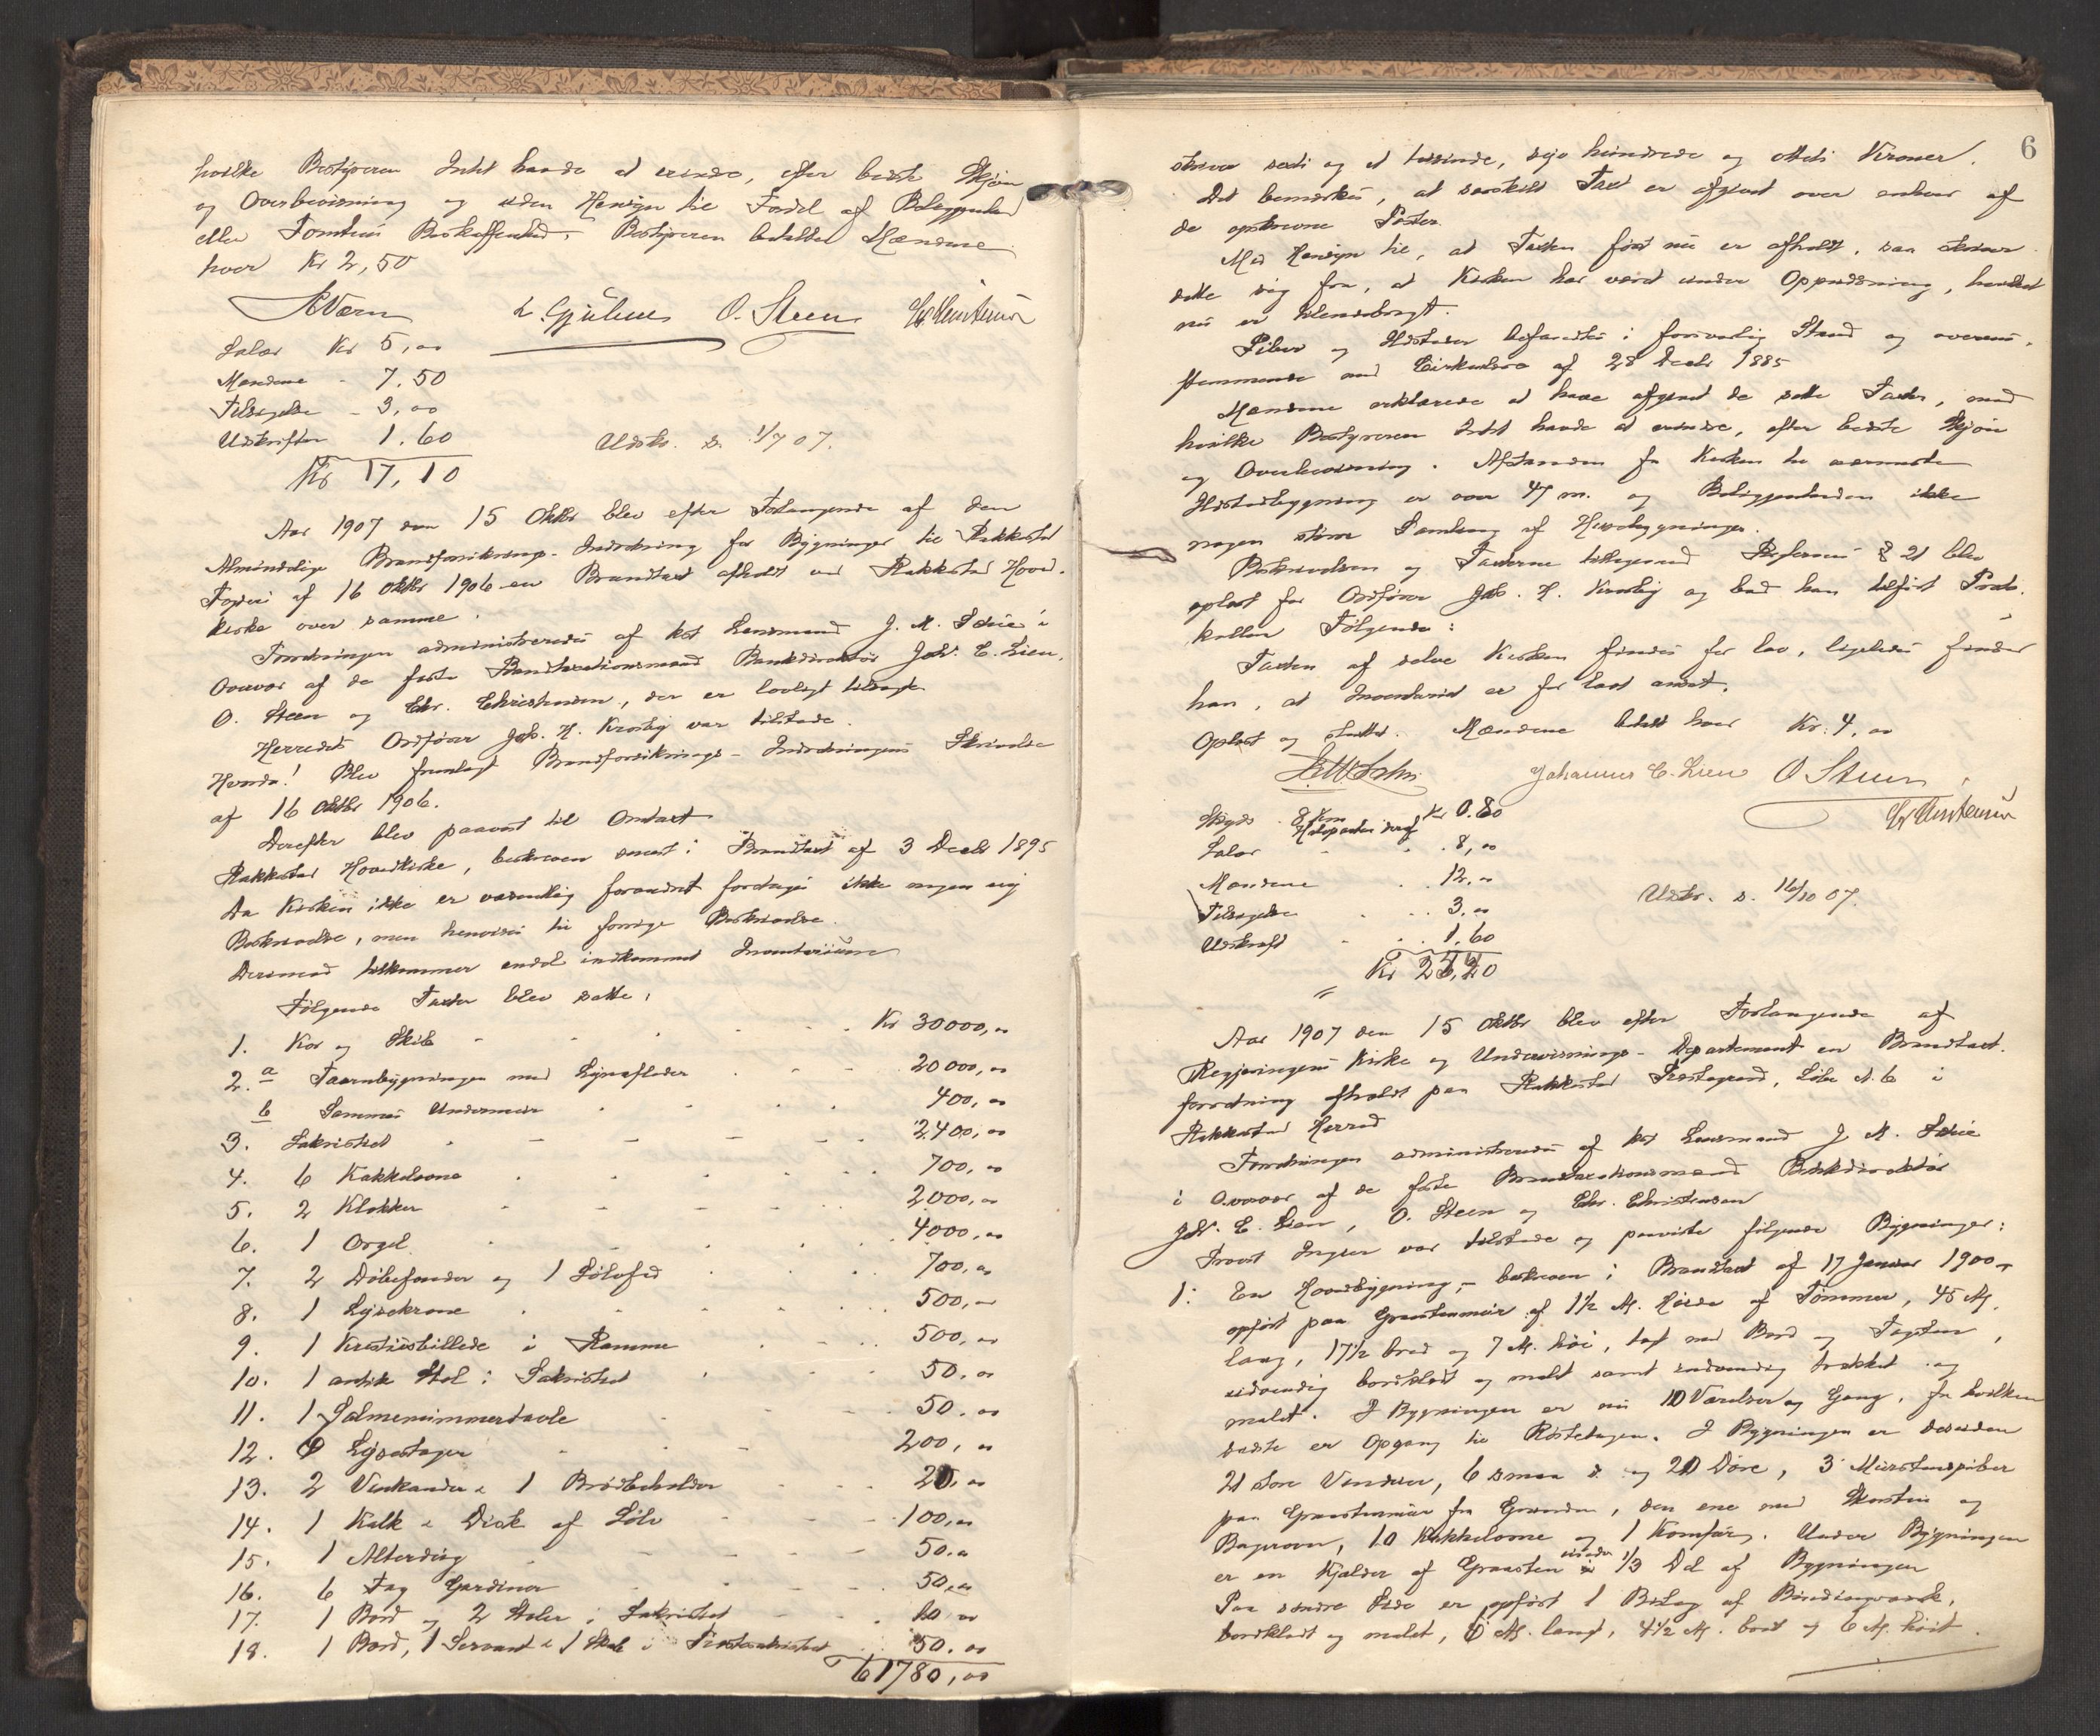 hvilke Bestyreren Intet havde at erindre, efter bedste Skjøn
og Overbevisning og uden Hensyn til Fordel af Beliggenhed
eller Tomtens Beskaffenhed. Bestyreren betalte Mændene
hver Kr 2,50
L. Gjulem O. Steen Chr Christensen
Salær Kr 5,00
Mændene - 7.50
Tilsigelse - 3,00
Udskrifter 1.60
Kr 17,10
Udskr. d. 1/7 07.
Aar 1907 den 15 Oktbr blev efter Forlangende af den
Almindelige Brandforsikrings-Indretning for Bygninger til Rakkestad
Fogderi af 16 Oktbr 1906 en Brandtaxt afholdt ved Rakkestad Hoved-
kirke over samme.
Forretningen administreredes af kst Lensmand J. M. i
Overvær af de faste Brandtaxationsmænd Bankdirektør Johs. C. Lien,
O. Steen og Chr. Christensen, der er lovligt tilsagte.
Herredets Ordfører Joh. H. Kirkeby var tilstede.
Hvorda! Blev fremlagt Brandforsikrings-Indretningens Skrivelse
af 16 Oktbr 1906.
Derefter blev paavist til Omtaxt
Rakkestad Hovedkirke, beskreven senest i Brandtaxt af 3 Decbr 1895
Da Kirken ikke er væsentlig forandret foretages ikke nogen ny
Beskrivelse, men henvises til forrige Beskrivelse.
Derimod tilkommer endel indkommet Inventarium
Følgende Taxter blev satte:
1. Kor og Skib Kr 30000,00
2. a Taarnbygningen med Lynafleder 20000,00
b Sammes Undermur 400,00
3. Sakristiet 2400,00
4. 6 Kakkelovne 700,00
5. 2 Klokker 2000,00
6. 1 Orgel 4000,00
7. 2 Døbefonder og 1 Sølvfad 700,00
8. 1 Lysekrone 500,00
9. 1 Kristusbillede i Ramme 500,00
10. 1 antik Stol i Sakristiet 50,00
11. 1 Salmenummertavle 50,00
12. Lysestager 200,00
13. 2 Vinkander & 1 Brødbeholder 20,00
14. 1 Kalk & Disk af Sølv 100,00
15. 1 Alterdug 50,00
16. 6 Fag Gardiner 50,00
17. 1 Bord og 2 Stoler i Sakristiet
18. 1 Bord, 1 Servant & 1 Skab i Præstesakristiet 50,00
61780,00
6
skriver sexti og et tusinde, syv hundrede og otteti Kroner.
Det bemærkes, at særskilt Taxt er afgivet over enhver af
de opskrevne Poster.
Med Hensyn til, at Taxten først nu er afholdt, saa skriver
dette sig fra, at Kirken har været under Oppudsning, hvilket
nu er tilendebragt.
Piber og Ildsteder befandtes i forsvarlig Stand og overens-
stemmende med Cirkulære af 28 Decbr 1885
Mændene erklærede at have afgivet de satte Taxter, mod
hvilke Bestyreren Intet havde at erindre, efter bedste Skjøn
og Overbevisning. Afstanden fra Kirken til nærmeste
Ildstedbygning er over 47 m. og Beliggenheden ikke
nogen større Samling af Husebygninger.
Beskrivelsen og Taxterne tilligemed § 21 blev
oplæst for Ordfører Joh. H. Kirkeby og bad han tilført Proto-
kollen Følgende:
Taxten af selve Kirken findes for lav, ligeledes finder
han, at Inventariet er for lavt ansat.
Oplæst og sluttet. Mændene betalt hver Kr. 4,00
Johannes C. Lien O Steen
Chr Christensen
Skyds 8 Km Kr 0.80
Halvparten deraf
Salær 8,00
Mændene 12,00
Tilsigelse 3,00
Udskrift 1,60
Kr
Udskr. d. 16/10 07.
Aar 1907 den 15 Oktbr blev efter Forlangende af
Regjeringens Kirke og Undervisnings-Departement en Brandtaxt-
forretning afholdt paa Rakkestad Præstegaard, Løbe N. 6 i
Rakkestad Herred
Forretningen administreredes af kst Lensmand J. M.
i Overvær af de faste Brandtaxationsmænd Bankdirektør
Johs. C. Lien, O. Steen og Chr. Christensen
Provst var tilstede og paaviste følgende Bygninger:
1. En Hovedbygning, beskreven i Brandtaxt af 17 Januar 1900,
opført paa Graastensmur af 1½ M. Høide af Tømmer, 45 M.
lang, 17½ bred og 7 M. høi, tæt med Bord og Tagsten,
udvendig bordklædt og malt samt indvendig trukket og
malet. I Bygningen er nu 10 Værelser og Gang, fra hvilken
sidste er Opgang til Røsteetagen. I Bygningen er desuden
21 store Vinduer, 6 smaa d. og 20 Døre, 3 Murstenspiber
paa Graastensmur fra Grunden, den ene med Skorsten og
Bagerovn, 10 Kakkelovne og 1 Komfur. Under Bygningen
er en Kjælder af Graasten under 1/3 Del af Bygningen
Paa søndre Side er opført 1 Bislag af Bindingsværk,
bordklædt og malet, 6 M. langt, 4½ M. bredt og 6 M. høit.